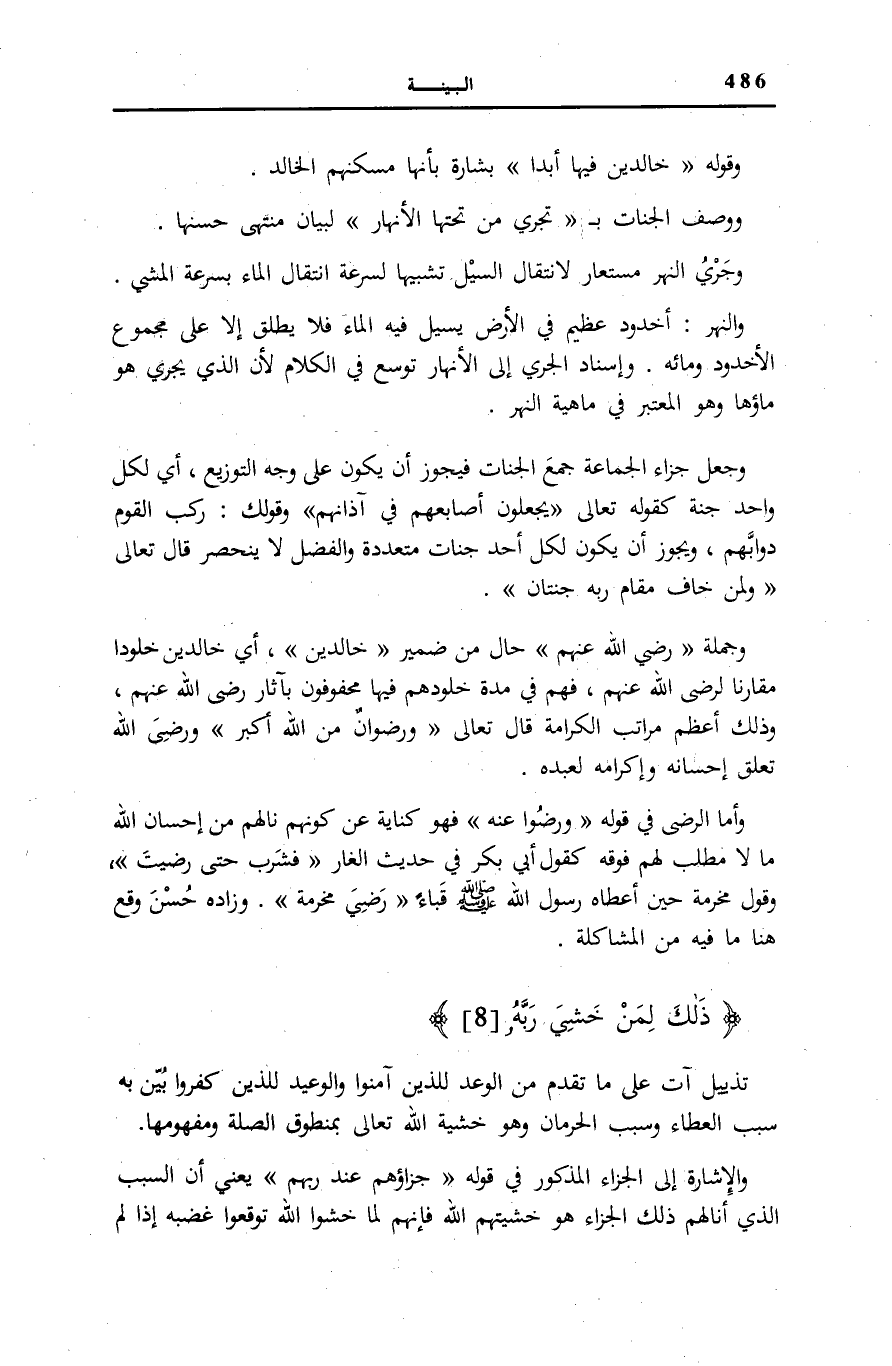 486
البينـــة
وقوله « خالدين فيها أبدا » بشارة بأنها مسكنهم الخالد .
ووصف الجنات بـ « تجري من تحتها الأنهار » لبيان منتهى حسنها .
وجَرْيُ النهر مستعار لانتقال السيْل تشبيها لسرعة انتقال الماء بسرعة المشي .
والنهر : أخدود عظيم في الأرض يسيل فيه الماء فلا يطلق إلا على مجموع
الأخدود ومائه . وإسناد الجري إلى الأنهار توسع في الكلام لأن الذي يجري هو
ماؤها وهو المعتبر في ماهية النهر .
وجعل جزاء الجماعة جمعَ الجنات فيجوز أن يكون على وجه التوزيع ، أي لكل
واحد جنة كقوله تعالى «يجعلون أصابعهم في آذانهم» وقولك : ركب القوم
دوابَّهم ، ويجوز أن يكون لكل أحد جنات متعددة والفضل لا ينحصر قال تعالى
« ولمن خاف مقام ربه جنتان » .
وجملة « رضي الله عنهم » حال من ضمير « خالدين » ، أي خالدين خلودا
مقارنا لرضى الله عنهم ، فهم في مدة خلودهم فيها محفوفون بآثار رضى الله عنهم ،
وذلك أعظم مراتب الكرامة قال تعالى « ورضوانٌ من الله أكبر » ورضِيَ الله
تعلق إحسانه وإكرامه لعبده .
وأما الرضى في قوله « ورضُوا عنه » فهو كناية عن كونهم نالهم من إحسان الله
ما لا مطلب لهم فوقه كقول أبي بكر في حديث الغار « فشَرب حتى رضيتَ »،
وقول مخرمة حين أعطاه رسول الله ﷺ قَباءً « رَضِيَ مخرمة » . وزاده حُسْنَ وقع
هنا ما فيه من المشاكلة .
﴿ ذَٰلكَ لِمَنْ خَشِيَ رَبَّهُۥ [8] ﴾
تذييل آت على ما تقدم من الوعد للذين آمنوا والوعيد للذين كفروا بُيّن به
سبب العطاء وسبب الحرمان وهو خشية الله تعالى بمنطوق الصلة ومفهومها.
والإشارة إلى الجزاء المذكور في قوله « جزاؤهم عند ربهم » يعني أن السبب
الذي أنالهم ذلك الجزاء هو خشيتهم الله فإنهم لما خشوا الله توقعوا غضبه إذا لم